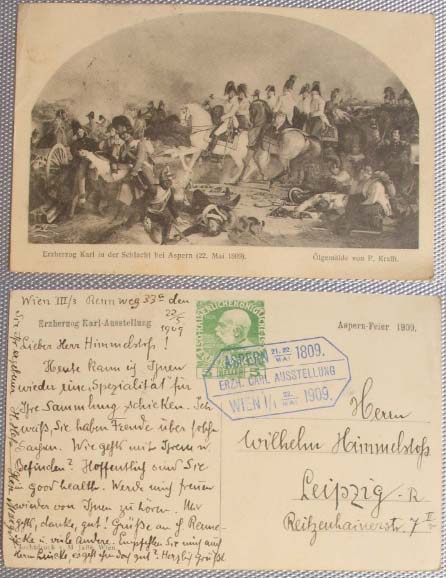 Erzherzog Karl in der Schlacht bei Aspern (22. Mai 1809).
Ölgemälde von P. Krafft.
Wien III/3 Rennweg 33a den
22/5 1909
Erzherzog Karl-Ausstellung
Aspern-Feier 1909.
Lieber Herr Himmelstoß!
Heute kann ich Ihnen
wieder eine "Spezialität" für
Ihre Sammlung schicken. Ich
weiß, Sie haben Freude über solche
Sachen. Wie geht's mit Ihrem
Befinden? Hoffentlich sind Sie
in good health. Werde mich freuen
wieder von Ihnen zu hören. Mir
geht's, danke, gut! Grüße an
viele Andere. Empfehlen Sie mich auch
Herzlich Grüßt
ASPERN 21. 22. MAI 1809.
ERZH. CARL AUSSTELLUNG
WIEN I/1 22. MAI 1909.
5
Herrn
Wilhelm Himmelstoß
Leipzig-R
Reitzenhainerstr. 7 II